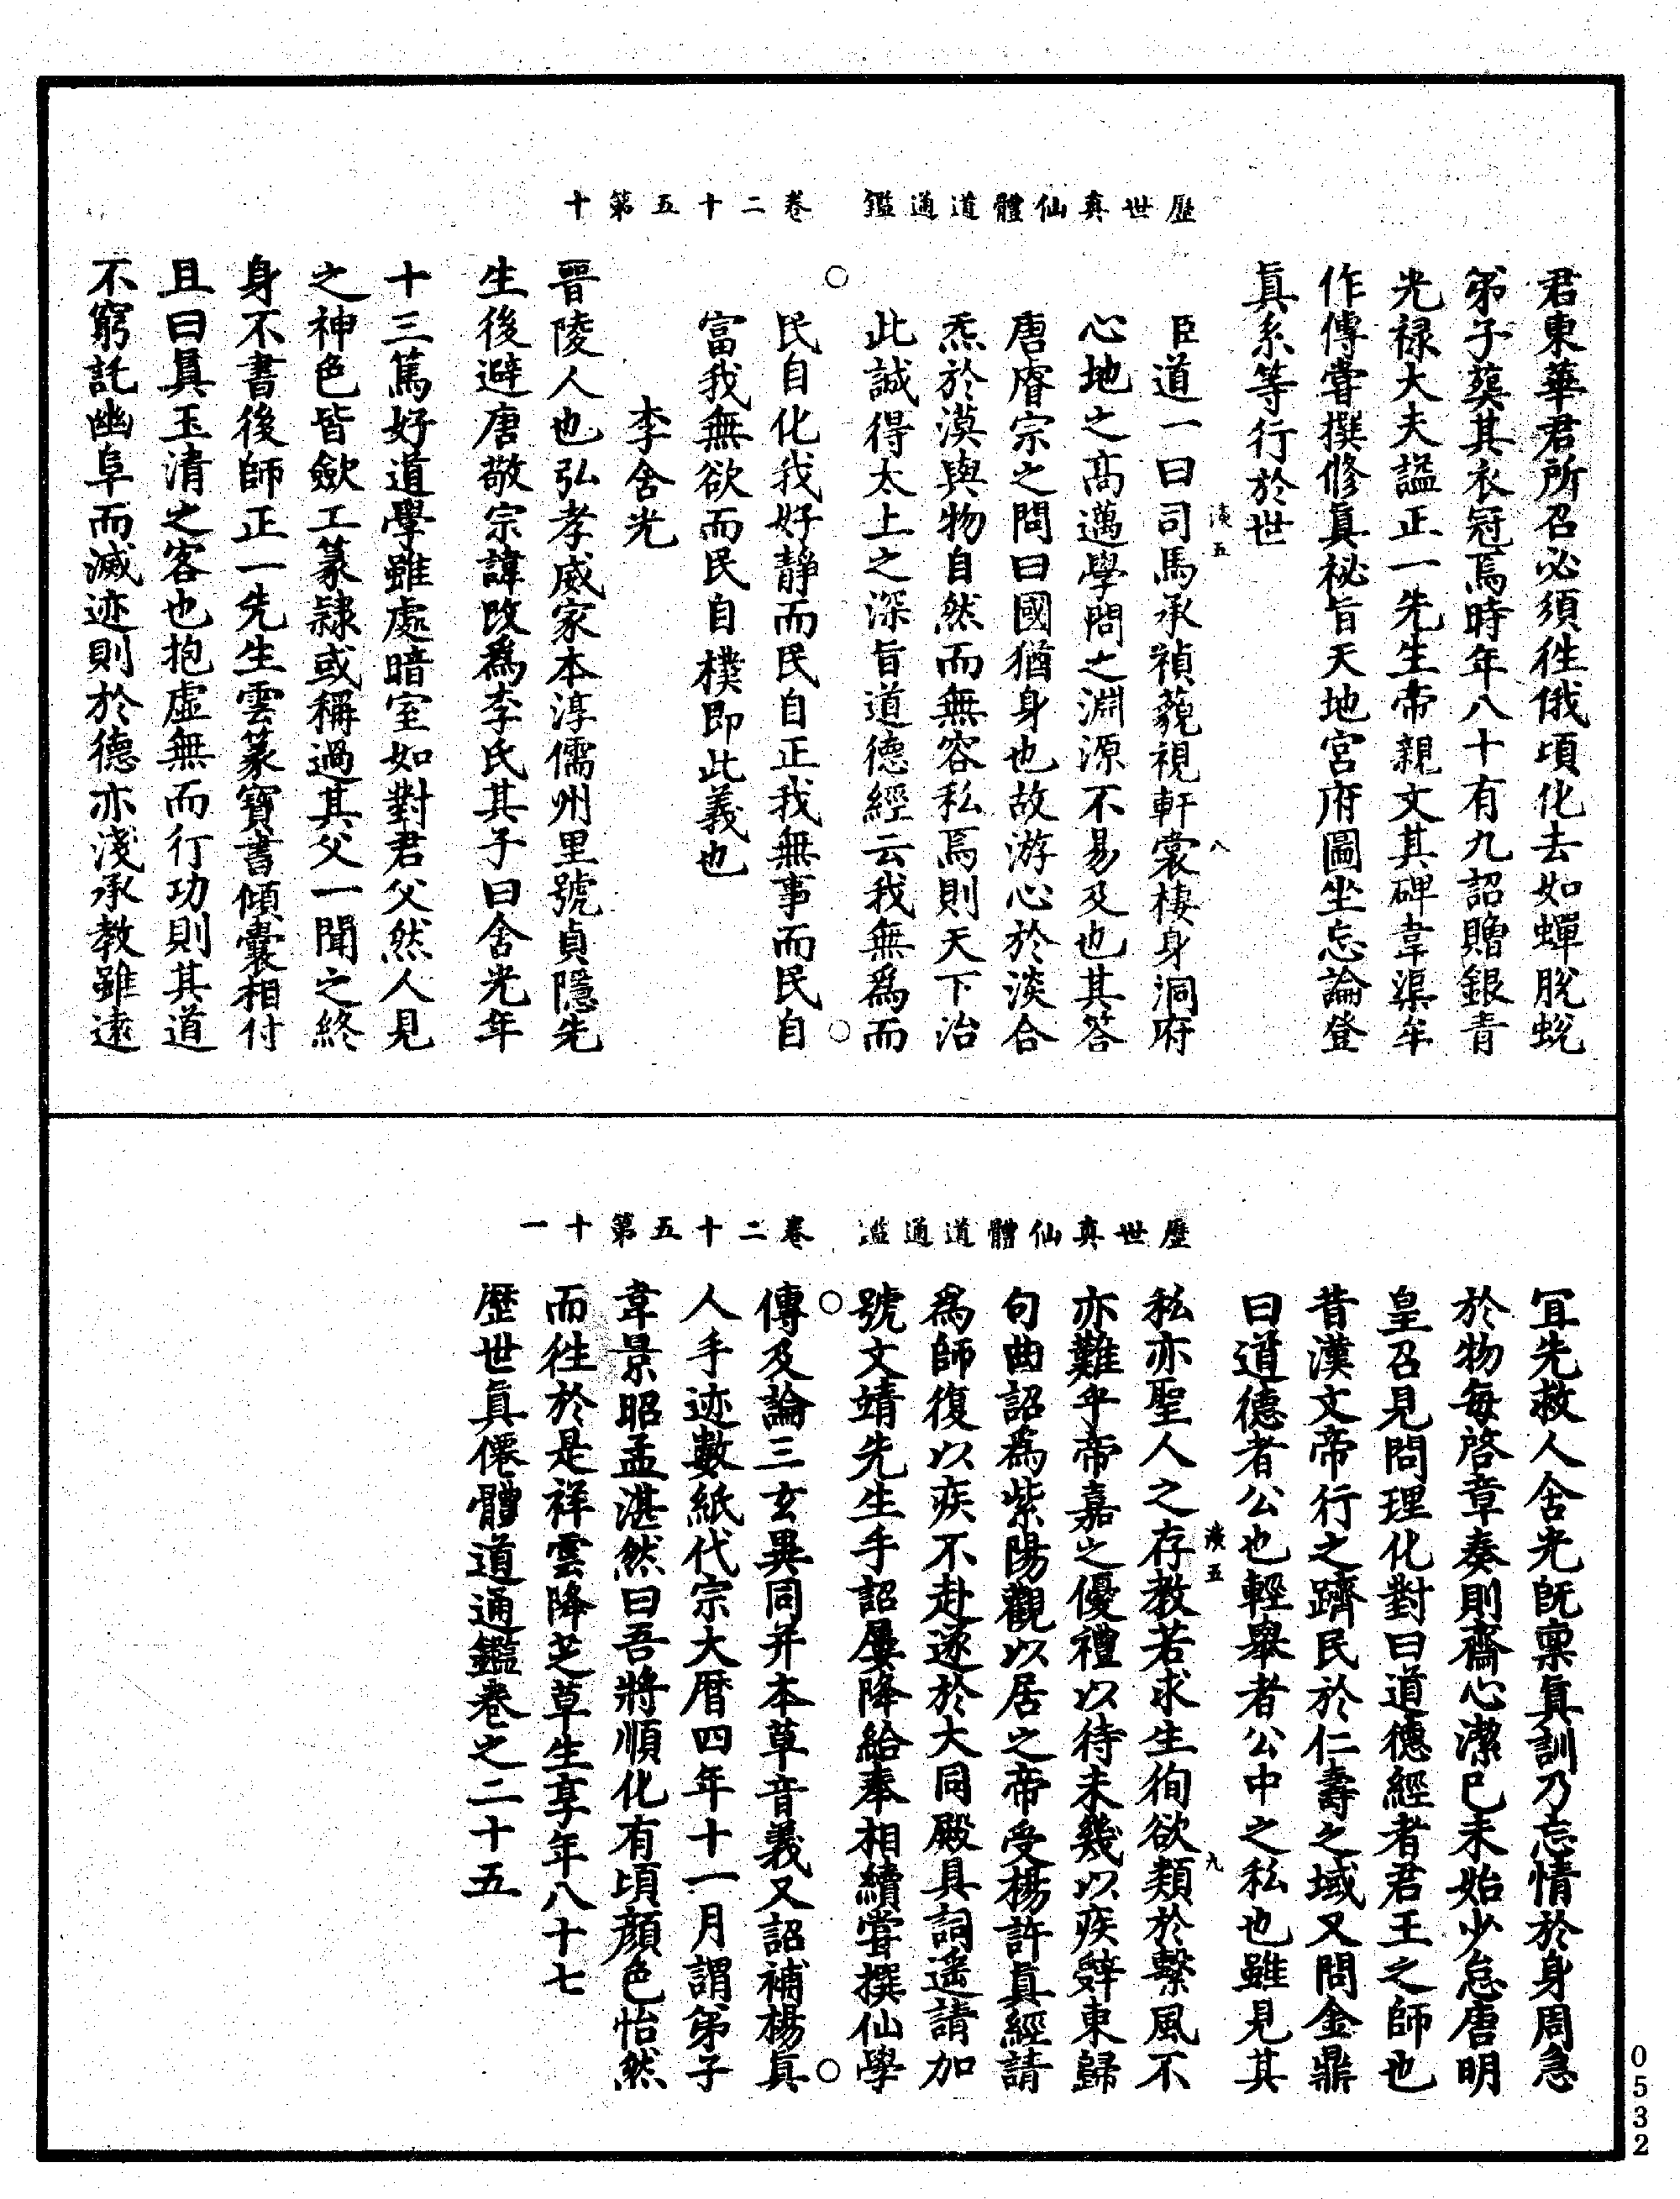 歷世真仙體道通鑑　卷二十五第十
君東華君所召必須徃俄頃化去如蟬脫蛻
弟子葬其衣冠焉時年八十有九詔贈銀青
光禄大夫謚正一先生帝親文其碑韋渠牟
作傳嘗撰修眞祕旨天地宮府圖坐忘論登
眞系等行於世
臣道一曰司馬承禎藐視軒裳棲身洞府
心地之高邁學問之淵源不易及也其答
唐睿宗之問曰國猶身也故游心於淡合
炁於漠與物自然而無容私焉則天下治
此誠得太上之深旨道德經云我無爲而
民自化我好靜而民自正我無事而民自
富我無欲而民自樸即此義也
李含光
晉陵人也弘孝威家本淳儒州里號貞隱先
生後避唐敬宗諱改爲李氏其子曰含光年
十三篤好道學雖處暗室如對君父然人見
之神色皆斂工篆隸或稱過其父一聞之終
身不書後師正一先生雲篆寶書傾囊相付
且曰眞玉清之客也抱虛無而行功則其道
不窮託幽阜而滅迹則於德亦淺承教雖遠
歷世真仙體道通鑑　卷二十五第十一
宜先救人含光旣稟眞訓乃忘情於身周急
於物每啓章奏則齋心潔已未始少怠唐明
皇召見問理化對曰道德經者君王之師也
昔漢文帝行之躋民於仁壽之域又問金鼎
曰道德者公也輕舉者公中之私也雖見其
私亦聖人之存教若求生徇欲類於繫風不
亦難乎帝嘉之優禮以待未幾以疾辭東歸
句曲詔爲紫陽觀以居之帝受楊許眞經請
爲師復以疾不赴遂於大同殿具詞遥請加
號文靖先生手詔屢降給奉相續嘗撰仙學
傳及論三玄異同并本草音義又詔補楊眞
人手迹數紙代宗大曆四年十一月謂弟子
韋景昭孟湛然曰吾將順化有頃顏色怡然
而徃於是祥雲降芝草生享年八十七
歷世眞僊體道通鑑卷之二十五
0532